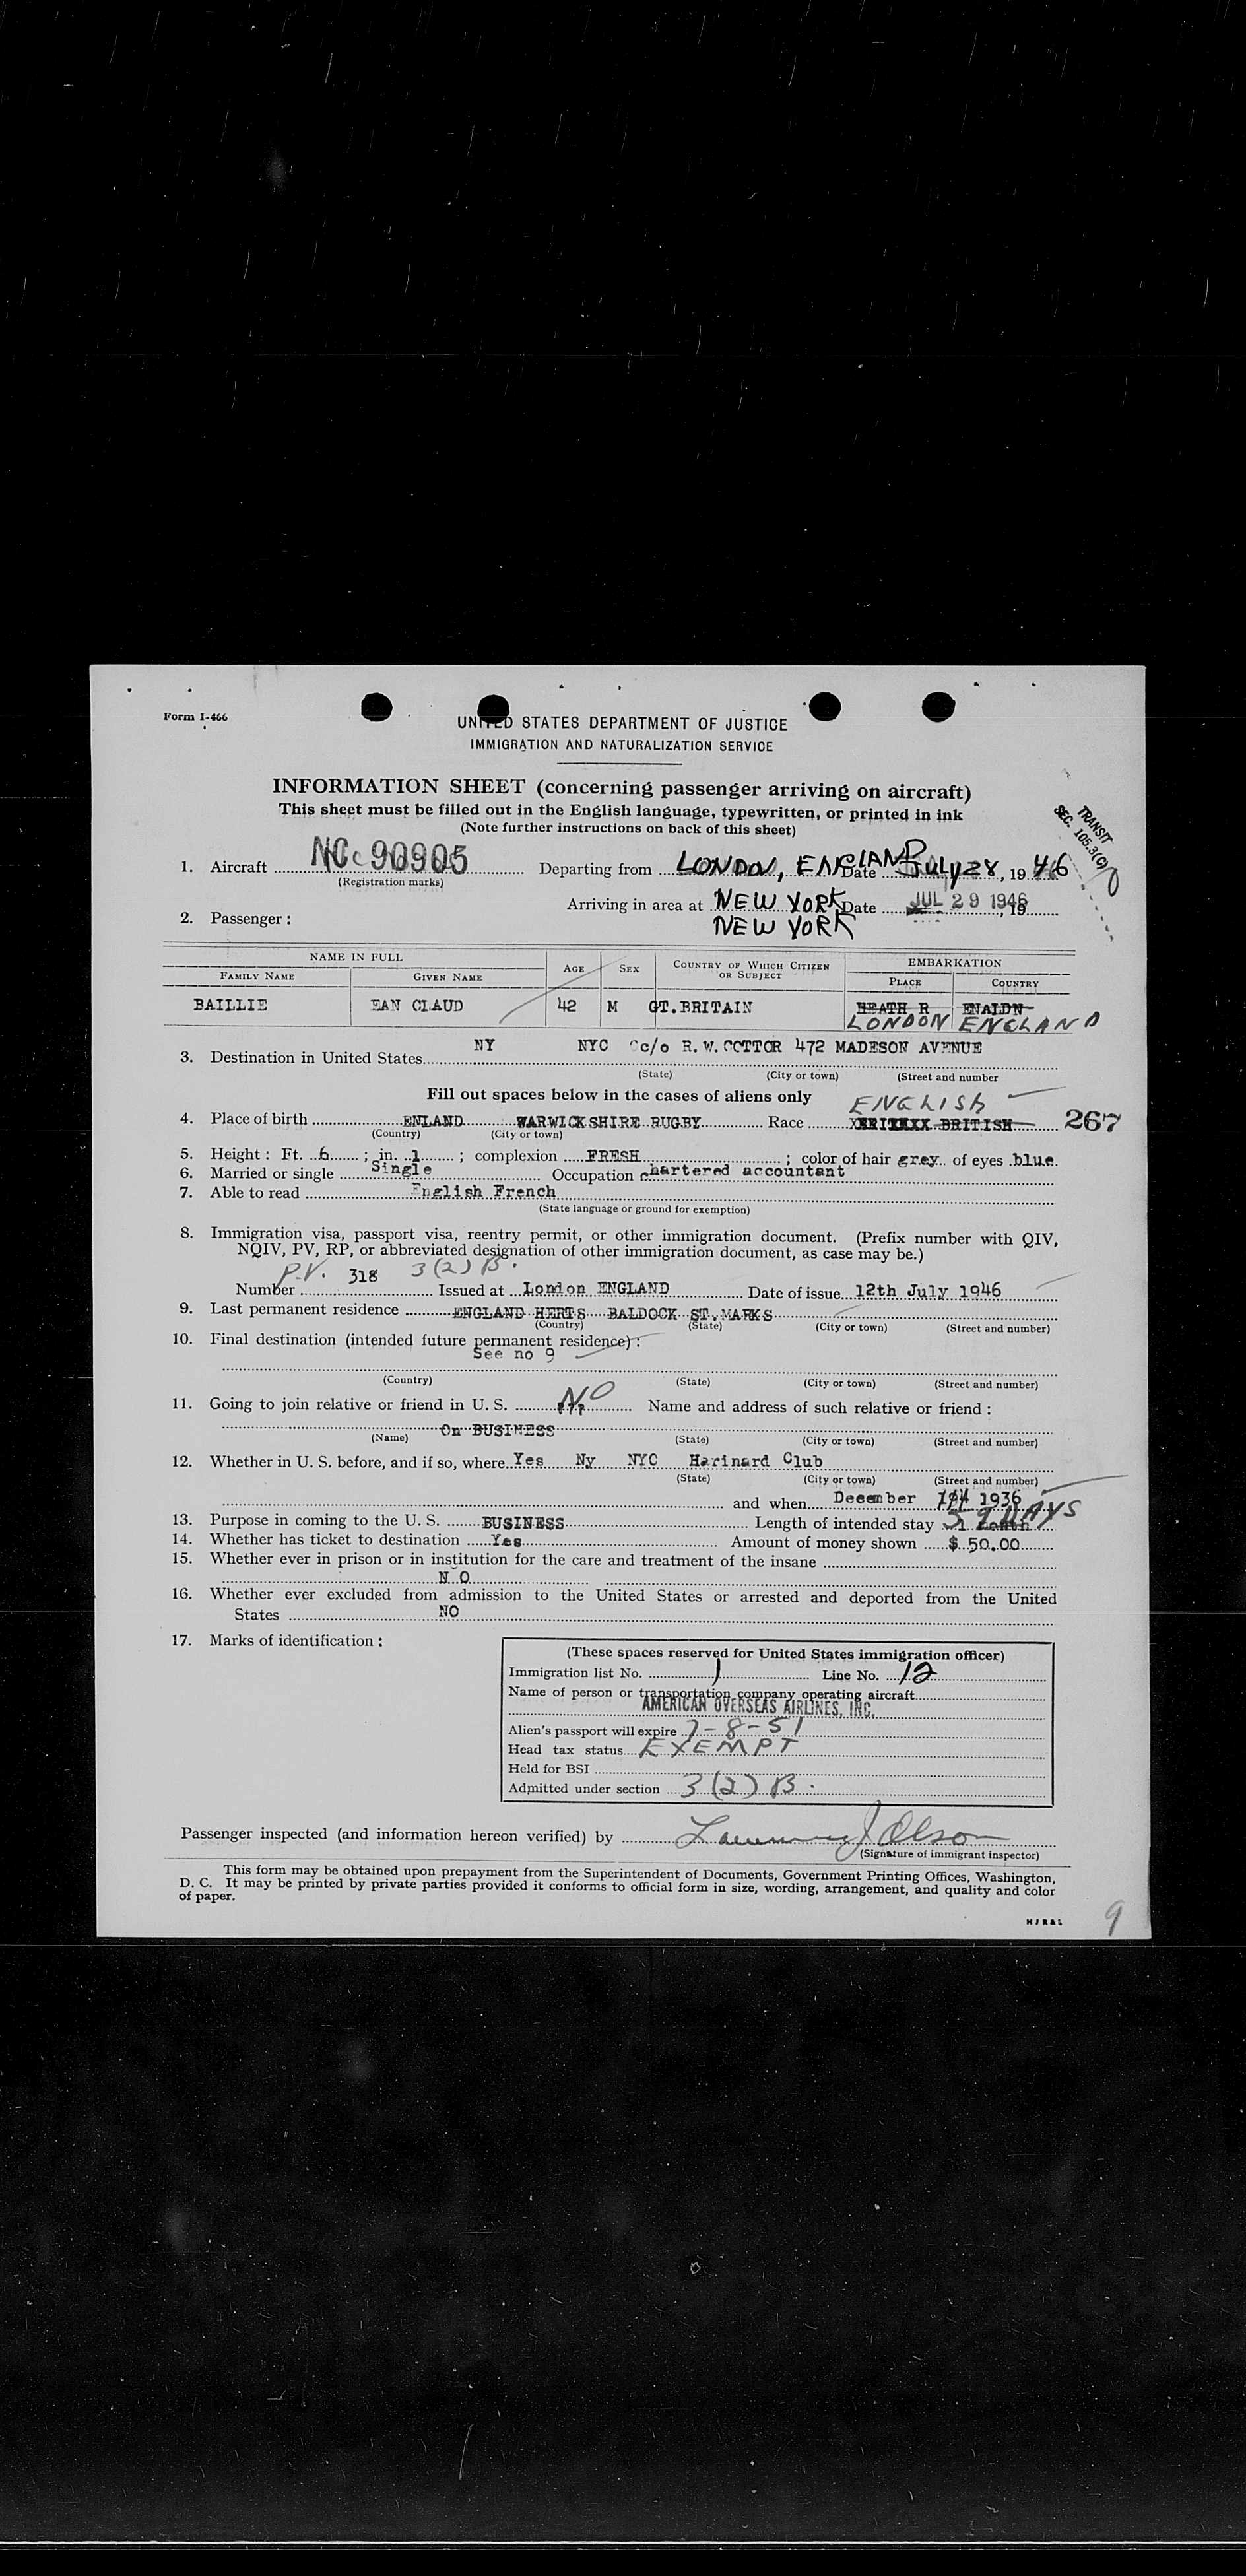 Form I-466
UNITED STATES DEPARTMENT OF JUSTICE
IMMIGRATION AND NATURALIZATION SERVICE
INFORMATION SHEET (concerning passenger arriving on aircraft)
This sheet must be filled out in the English language, typewritten, or printed in ink
(Note further instructions on back of this sheet)
TRANSIT
SEC. 105.3(C)
1. Aircraft NC 90905 Departing from LONDON, ENGLAND Date July 28, 1946
(Registration marks)
Arriving in area at NEW YORK Date JUL 29 1946, 19
2. Passenger: NEW YORK
NAME IN FULL AGE SEX COUNTRY OF WHICH CITIZEN OR SUBJECT EMBARKATION
FAMILY NAME GIVEN NAME PLACE COUNTRY
BAILLIE EAN CLAUD 42 M GT.BRITAIN HEATH R ENALDN
LONDON ENGLAND
3. Destination in United States NY NYC c/o R.W.COTTOR 472 MADESON AVENUE
(State) (City or town) (Street and number
Fill out spaces below in the cases of aliens only
ENGLISH
4. Place of birth ENLAND WARWICKSHIRE RUGBY Race BRITISH 267
(Country) (City or town)
5. Height: Ft. 6; in. 1; complexion FRESH; color of hair grey of eyes blue
6. Married or single Single Occupation chartered accountant
7. Able to read English French
(State language or ground for exemption)
8. Immigration visa, passport visa, reentry permit, or other immigration document. (Prefix number with QIV,
NQIV, PV, RP, or abbreviated designation of other immigration document, as case may be.)
P.V. 318 3(2) B.
Number Issued at London ENGLAND Date of issue 12th July 1946
9. Last permanent residence ENGLAND HERTS BALDOCK ST.MARKS
(Country) (State) (City or town) (Street and number)
10. Final destination (intended future permanent residence):
See no 9
(Country) (State) (City or town) (Street and number)
11. Going to join relative or friend in U. S. NO Name and address of such relative or friend:
On BUSINESS
(Name) (State) (City or town) (Street and number)
12. Whether in U. S. before, and if so, where Yes Ny NYC Harinard Club
(State) (City or town) (Street and number)
and when December 1936
13. Purpose in coming to the U. S. BUSINESS Length of intended stay DAYS
14. Whether has ticket to destination Yes Amount of money shown $ 50.00
15. Whether ever in prison or in institution for the care and treatment of the insane
N O
16. Whether ever excluded from admission to the United States or arrested and deported from the United
States NO
17. Marks of identification:
(These spaces reserved for United States immigration officer)
Immigration list No. 1 Line No. 12
Name of person or transportation company operating aircraft
AMERICAN OVERSEAS AIRLINES, INC.
Alien's passport will expire 7-8-51
Head tax status EXEMPT
Held for BSI
Admitted under section 3(2) B.
Passenger inspected (and information hereon verified) by J Olson
(Signature of immigrant inspector)
This form may be obtained upon prepayment from the Superintendent of Documents, Government Printing Offices, Washington,
D. C. It may be printed by private parties provided it conforms to official form in size, wording, arrangement, and quality and color
of paper.
9